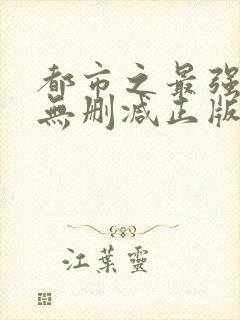 都市之最强
無删减正版
江葉靈